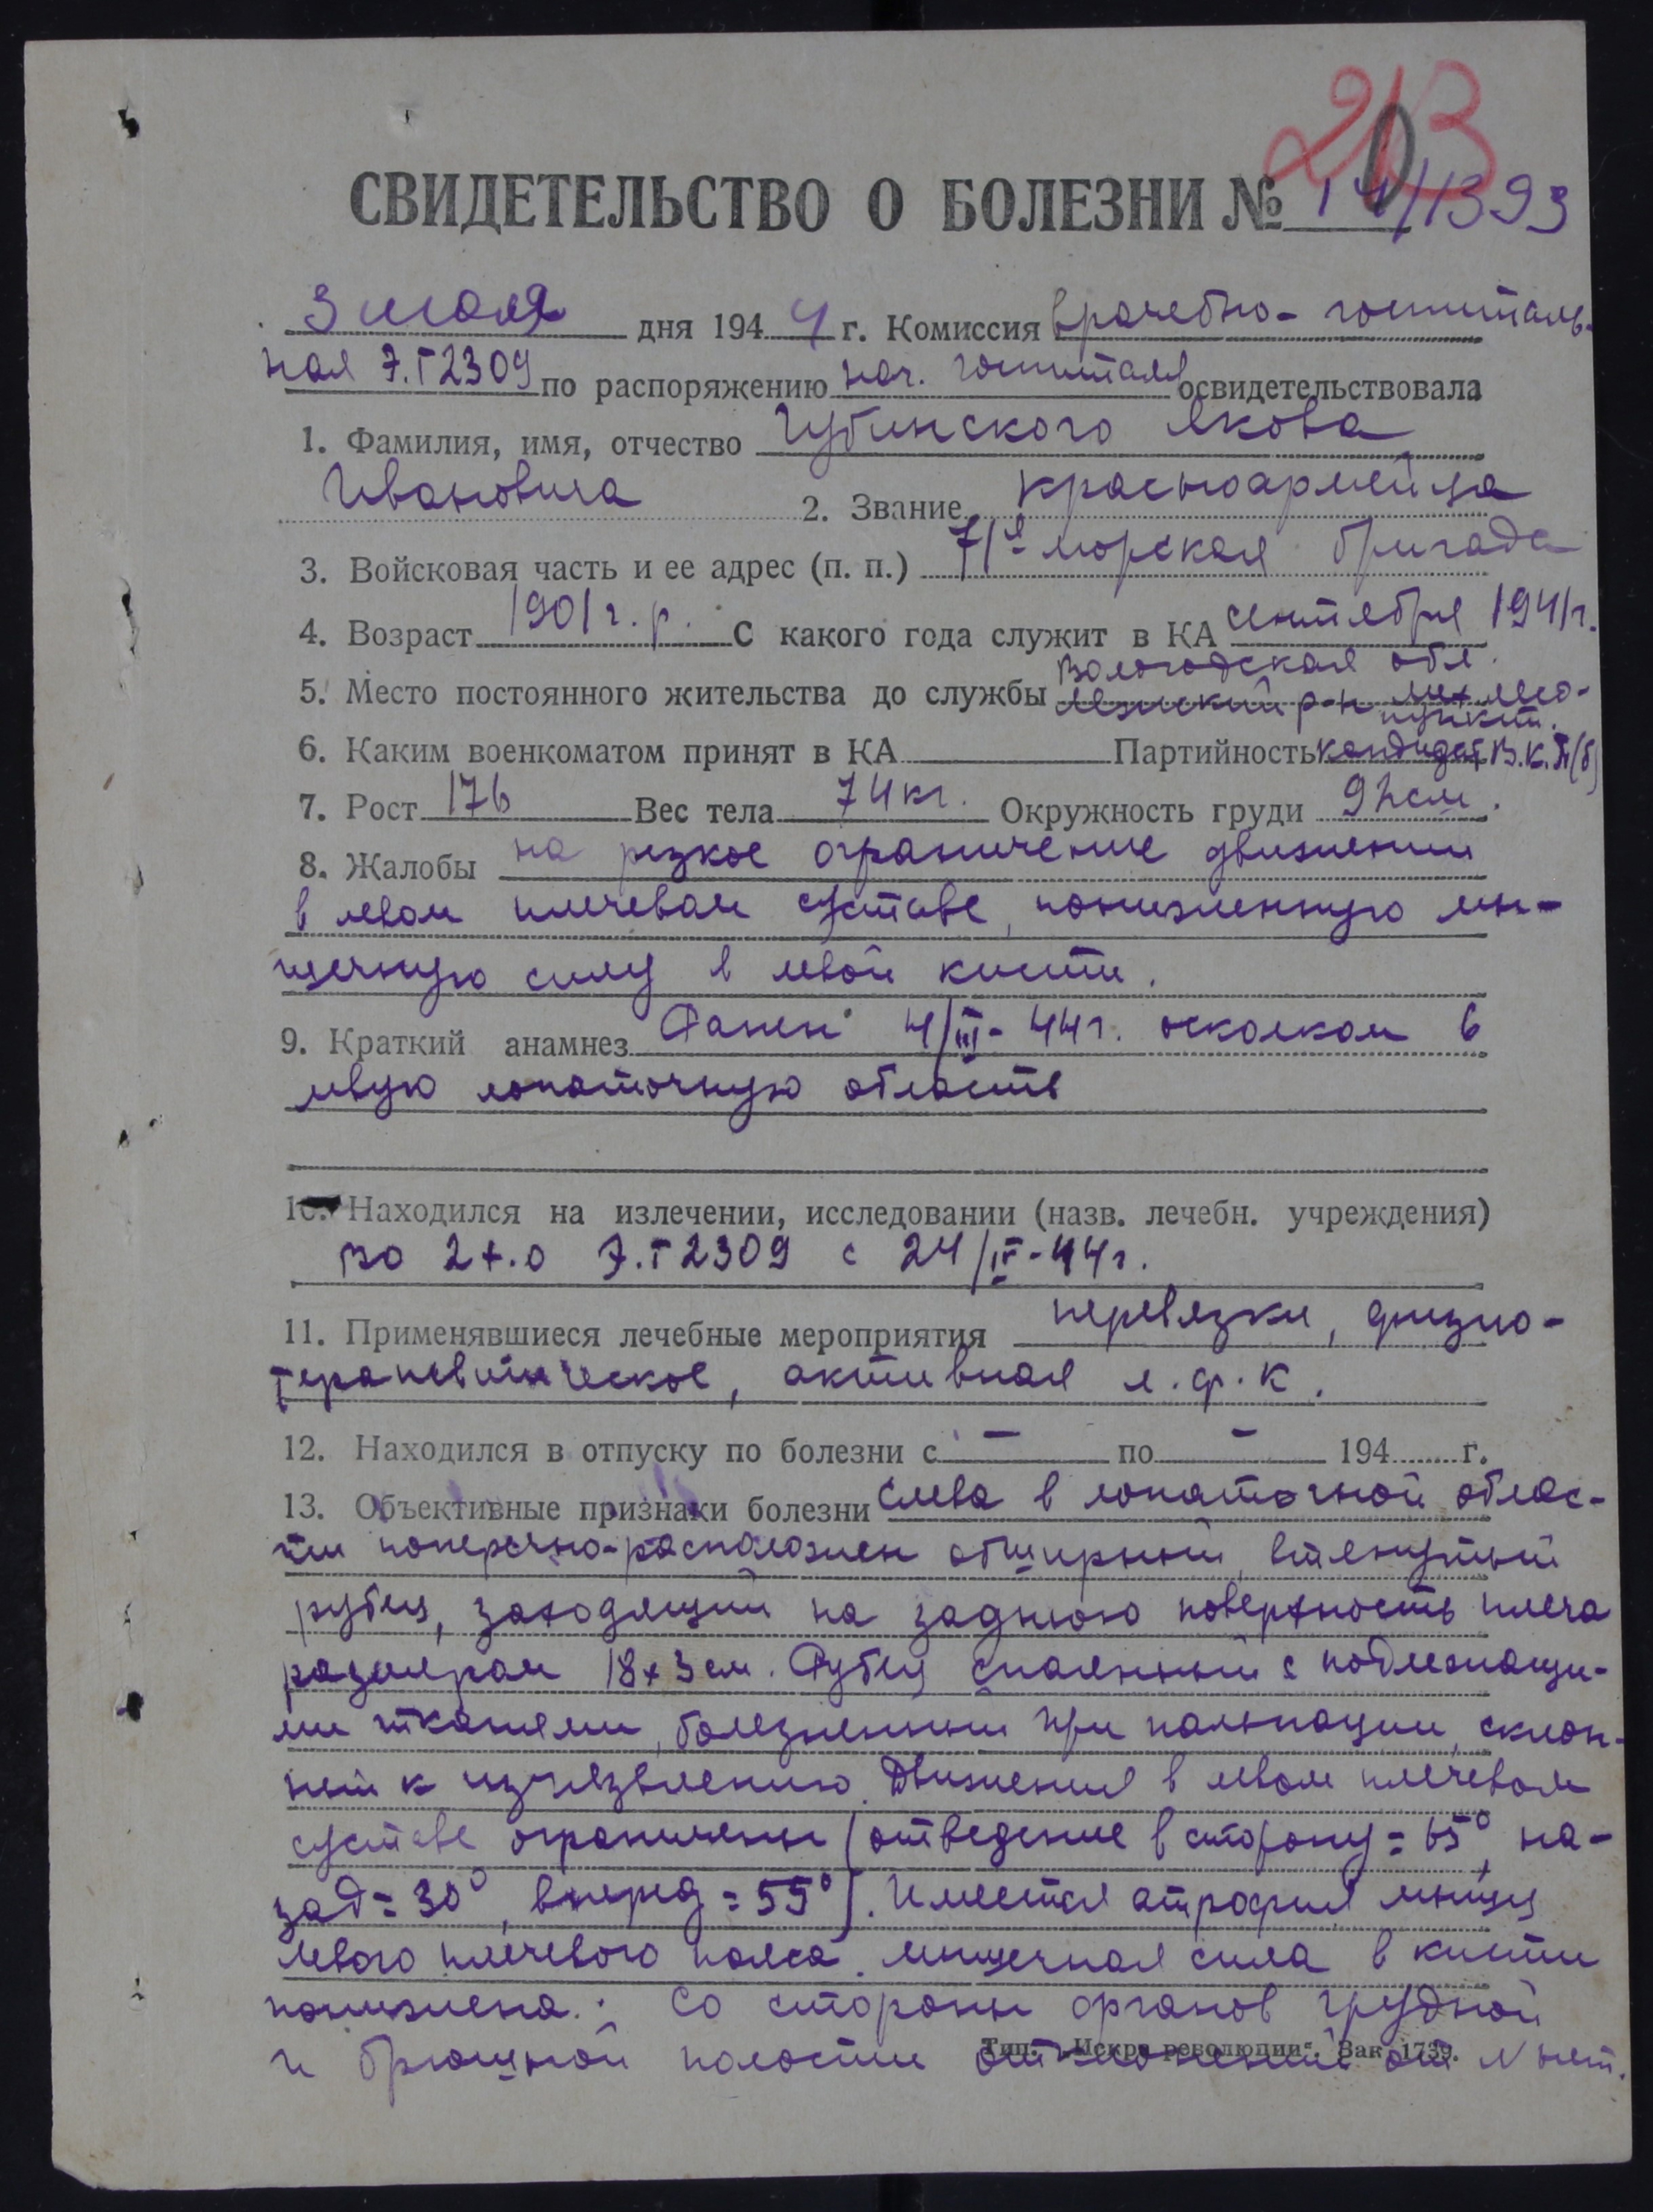 213
0
СВИДЕТЕЛЬСТВО О БОЛЕЗНИ № 14/1393
3 июля дня 1944 г. Комиссия врачебно-госпиталь-
ная Э.Г 2309 по распоряжению нач. госпиталя освидетельствовала
1. Фамилия, имя, отчество Губинского Якова
Ивановича 2. Звание красноармейца
3. Войсковая часть и ее адрес (п. п.) 71я морская бригада
4. Возраст 1901 г. р. С какого года служит в КА сентября 1941 г.
Вологодская обл.
5. Место постоянного жительства до службы р-н мех. лесо-
пункт.
6. Каким военкоматом принят в КА Партийность кандидат В.К.П(б)
7. Рост 176 Вес тела 74 кг. Окружность груди 92 см.
8. Жалобы на резкое ограничение движений
в левом плечевом суставе, пониженную мы-
шечную силу в левой кисти.
9. Краткий анамнез Ранен 4/III-44 г. осколком в
левую лопаточную область
10. Находился на излечении, исследовании (назв. лечебн. учреждения)
во 2 х.о Э.Г 2309 с 24/IV-44 г.
11. Применявшиеся лечебные мероприятия перевязки, физио-
терапевтическое, активная л.ф.к.
12. Находился в отпуску по болезни с — по — 194 г.
13. Объективные признаки болезни Слева в лопаточной облас-
ти поперечно-расположен обширный, втянутый
рубец, заходящий на заднюю поверхность плеча
размером 18х3 см. Рубец спаянный с подлежащи-
ми тканями, болезненный при пальпации, склон-
ный к изъязвлению. Движения в левом плечевом
суставе ограничены (отведение в сторону = 65°, на-
зад = 30°, вперед = 55°). Имеется атрофия мышц
левого плечевого пояса. Мышечная сила в кисти
понижена. Со стороны органов грудной
и брюшной полости отклонений от N нет.
Тип. „Искра революции". Зак. 1739.